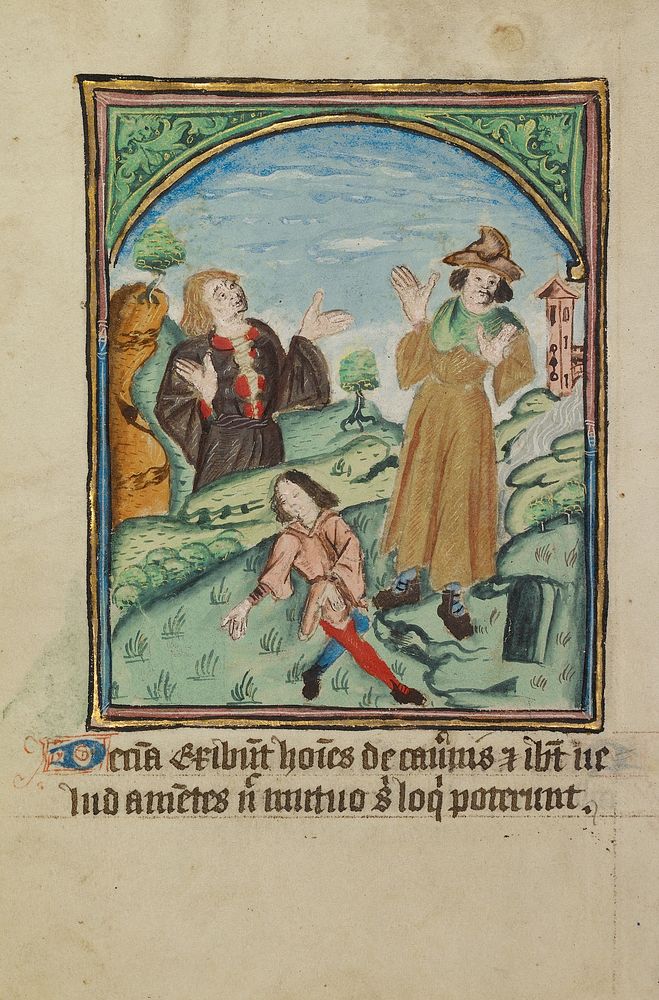 Decīa Exibūt hoīes de cauͥnis ⁊ ibūt ue
lud amētes ń mutuo sͥ loq̄ poterunt.